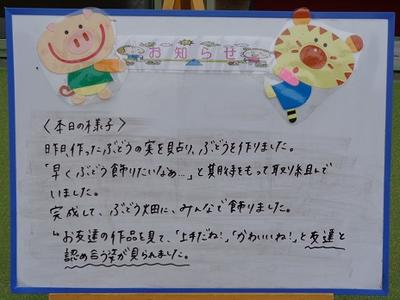 お知らせ
〈本日の様子〉
昨日、作ったぶどうの実を貼り、ぶどうを作りました。
「早くぶどう飾りたいなぁ…」と期待をもって取り組んで
いました。
完成して、ぶどう畑に、みんなで飾りました。
↳お友達の作品を見て、「上手だね！」「かわいいね！」と友達と
認め合う姿が見られました。